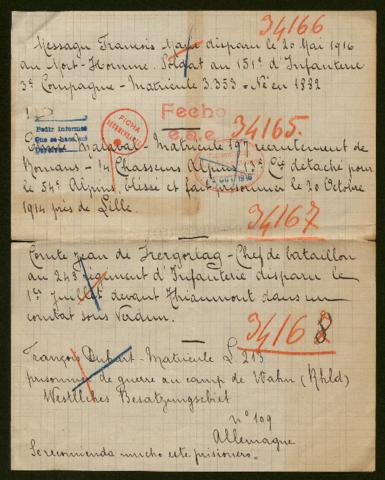 34166
Message François Marie disparu le 20 Mai 1916
au Mort-Homme. Soldat au 151e d'Infanterie
3e Compagnie - Matricule 3.353 - Né en 1892
FICHA
Fecho
34165.
Pedir informes
Que se haga
Maraval - Matricule 197 recrutement de
Romans - 14 Chasseurs Alpins Cie détaché pour
le 54e Alpins blessé et fait prisonnier le 20 Octobre
1914 près de Lille.
34167
Comte Jean de - Chef de bataillon
au 243 régiment d'Infanterie disparu le
1er Juillet devant Thiaumont dans un
combat sous Verdun.
34168
François Dubart - Matricule L. 213
prisonnier de guerre au camp de Wahn (Rhld)
Westliches Besatzungsgebiet
n° 109
Allemagne
Se recomienda mucho este prisionero.